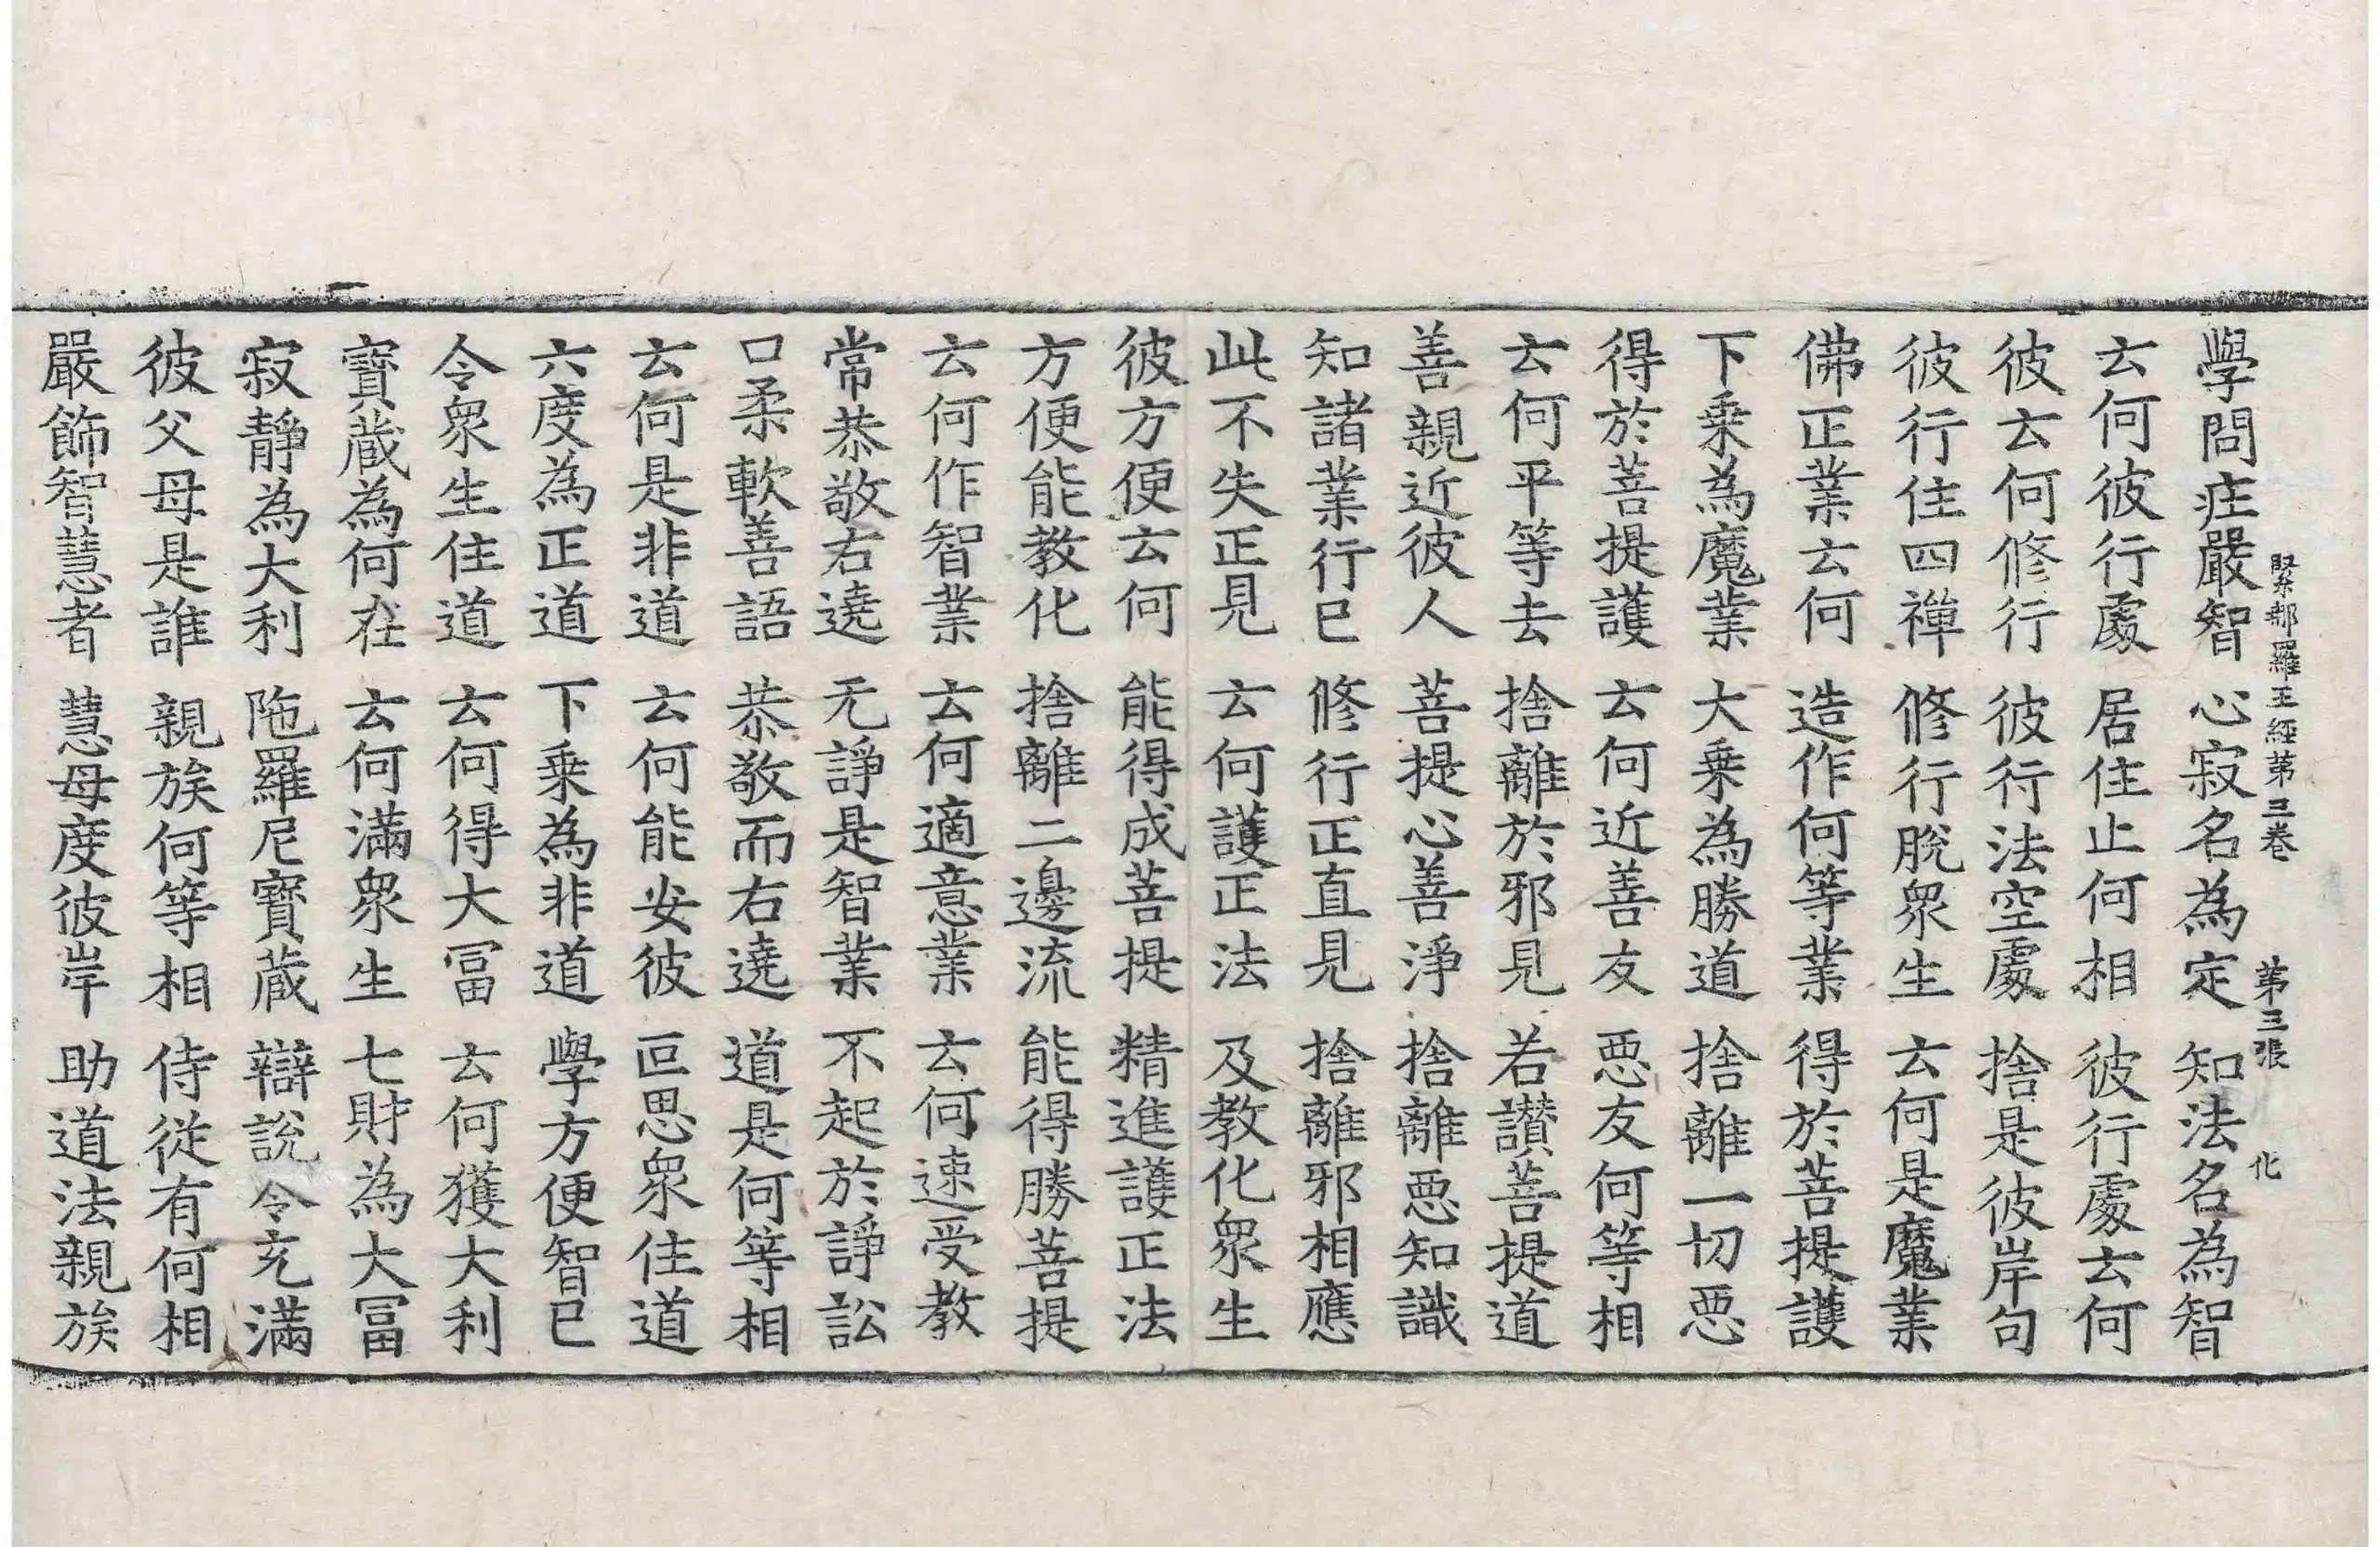 緊那羅王經第三卷 第三張 化
學問庄嚴智 心寂名為定 知法名為智
云何彼行處 居住止何相 彼行處云何
彼云何修行 彼行法空處 捨是彼岸句
彼行住四禪 修行脫衆生 云何是魔業
佛正業云何 造作何等業 得於菩提護
下乗為魔業 大乗為勝道 捨離一切惡
得於菩提護 云何近善友 惡友何等相
云何平等去 捨離於邪見 若讃菩提道
善親近彼人 菩提心善淨 捨離惡知識
知諸業行已 修行正直見 捨離邪相應
此不失正見 云何護正法 及教化衆生
彼方便云何 能得成菩提 精進護正法
方便能教化 捨離二邊流 能得勝菩提
云何作智業 云何適意業 云何速受教
常恭敬右遶 无諍是智業 不起於諍訟
口柔軟善語 恭敬而右遶 道是何等相
云何是非道 云何能安彼 叵思衆住道
六度為正道 下乗為非道 學方便智已
令衆生住道 云何得大冨 云何獲大利
寶藏為何在 云何滿衆生 七財為大冨
寂靜為大利 陁羅尼寶藏 辯說令充滿
彼父母是誰 親族何等相 侍從有何相
嚴飾智慧者 慧母度彼岸 助道法親族